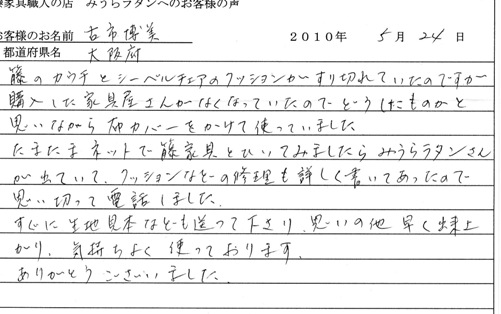 家具職人の店 みうらラタンへのお客様の声
お客様のお名前 古市博美 2010年 5月 24日
都道府県名 大阪府
籐のカウチとシーベルチェアのクッションがすり切れていたのですが
購入した家具屋さんがなくなっていたのでどうしたものかと
思いながら布カバーをかけて使っていました
たまたまネットで籐家具とひいてみましたらみうらラタンさん
が出ていて、クッションなどの修理も詳しく書いてあったので
思い切って電話しました。
すぐに生地見本なども送って下さり、思いの他早く出来上
がり、気持ちよく使っております。
ありがとうございました。